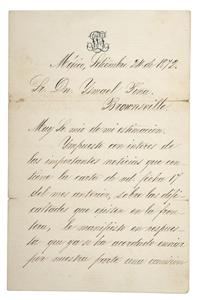 Méjico, Setiembre 24 de 1872.
Sr. Dn. Ysmael
Brownsville.
Muy Sr. mio de mi estimacion.
Impuesto con interes de
las importantes noticias que con
tiene la carta de ud. fecha 17
del mes anterior, sobre las difi
cultades que existen en la fron
tera, le manifiesto en respues
ta que ya se ha acordado enviar
por nuestra parte una comision